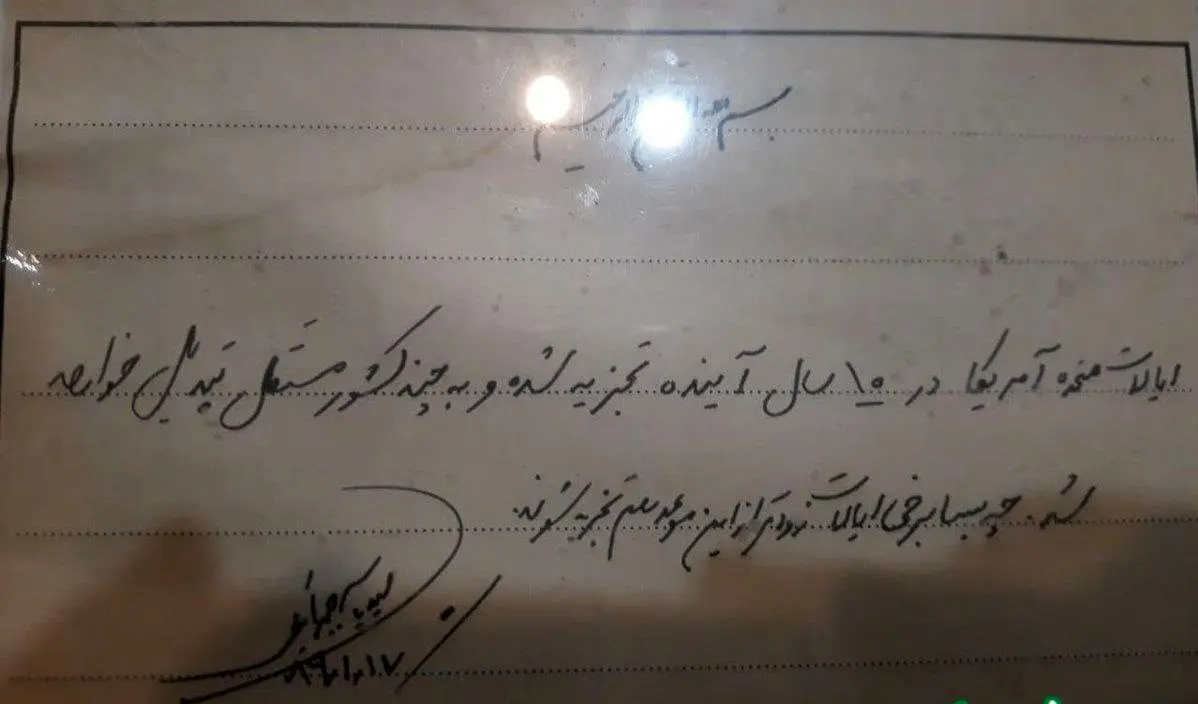 بسم الله الرحیم
ایالات متحده آمریکا در ۱۵ سال آینده تجزیه شده و به چند کشور مستقل تبدیل خواهد
شد. چه بسا برخی ایالات زودتر از این موعد هم تجزیه شوند.
سید یاسر جبرائیلی